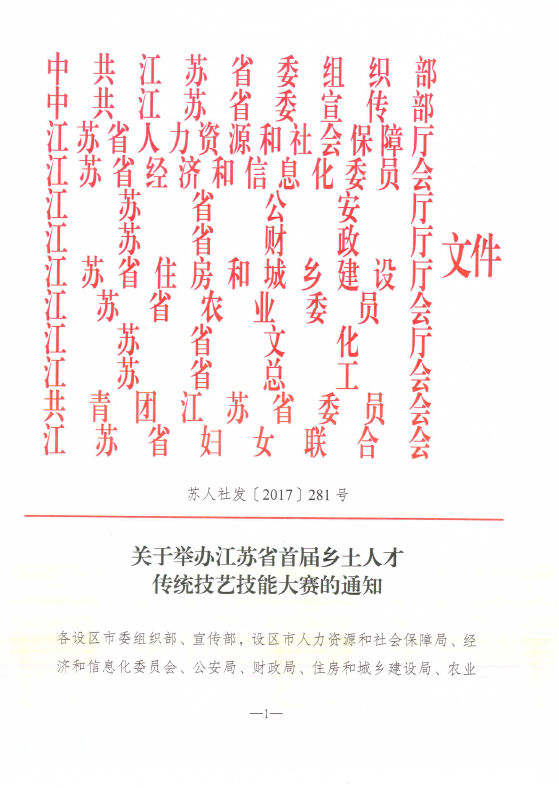 中共江苏省委组织部
中共江苏省委宣传部
江苏省人力资源和社会保障厅
江苏省经济和信息化委员会
江苏省公安厅
江苏省财政厅
江苏省住房和城乡建设厅
江苏省农业委员会
江苏省文化厅
江苏省总工会
共青团江苏省委员会
江苏省妇女联合会
文件
苏人社发〔2017〕281号
关于举办江苏省首届乡土人才
传统技艺技能大赛的通知
各设区市委组织部、宣传部，设区市人力资源和社会保障局、经
济和信息化委员会、公安局、财政局、住房和城乡建设局、农业
—1—